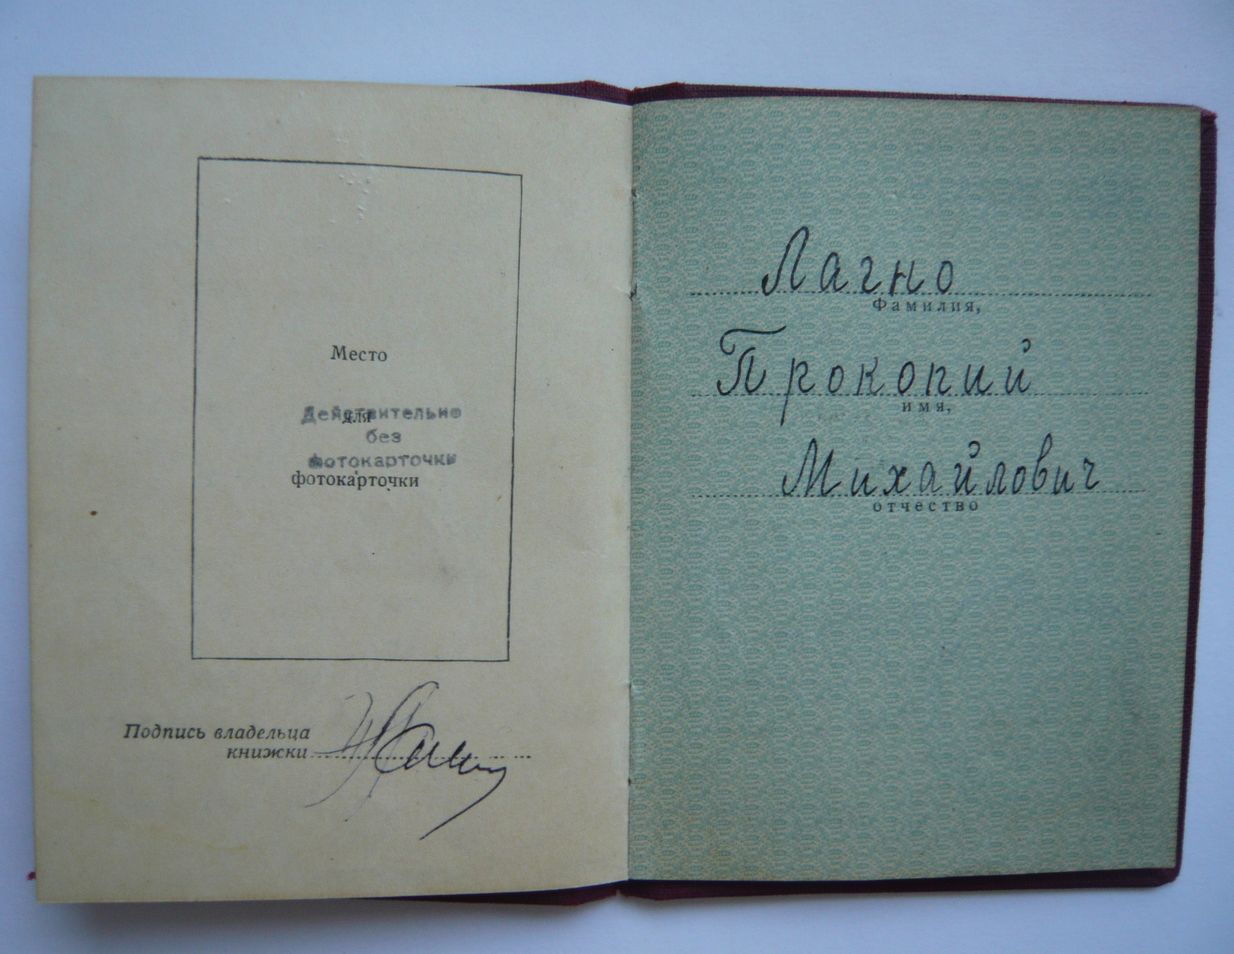 Место
для
Действительно
без
фотокарточки
фотокарточки
Подпись владельца
книжки
Лагно
Фамилия,
Прокопий
имя,
Михайлович
отчество